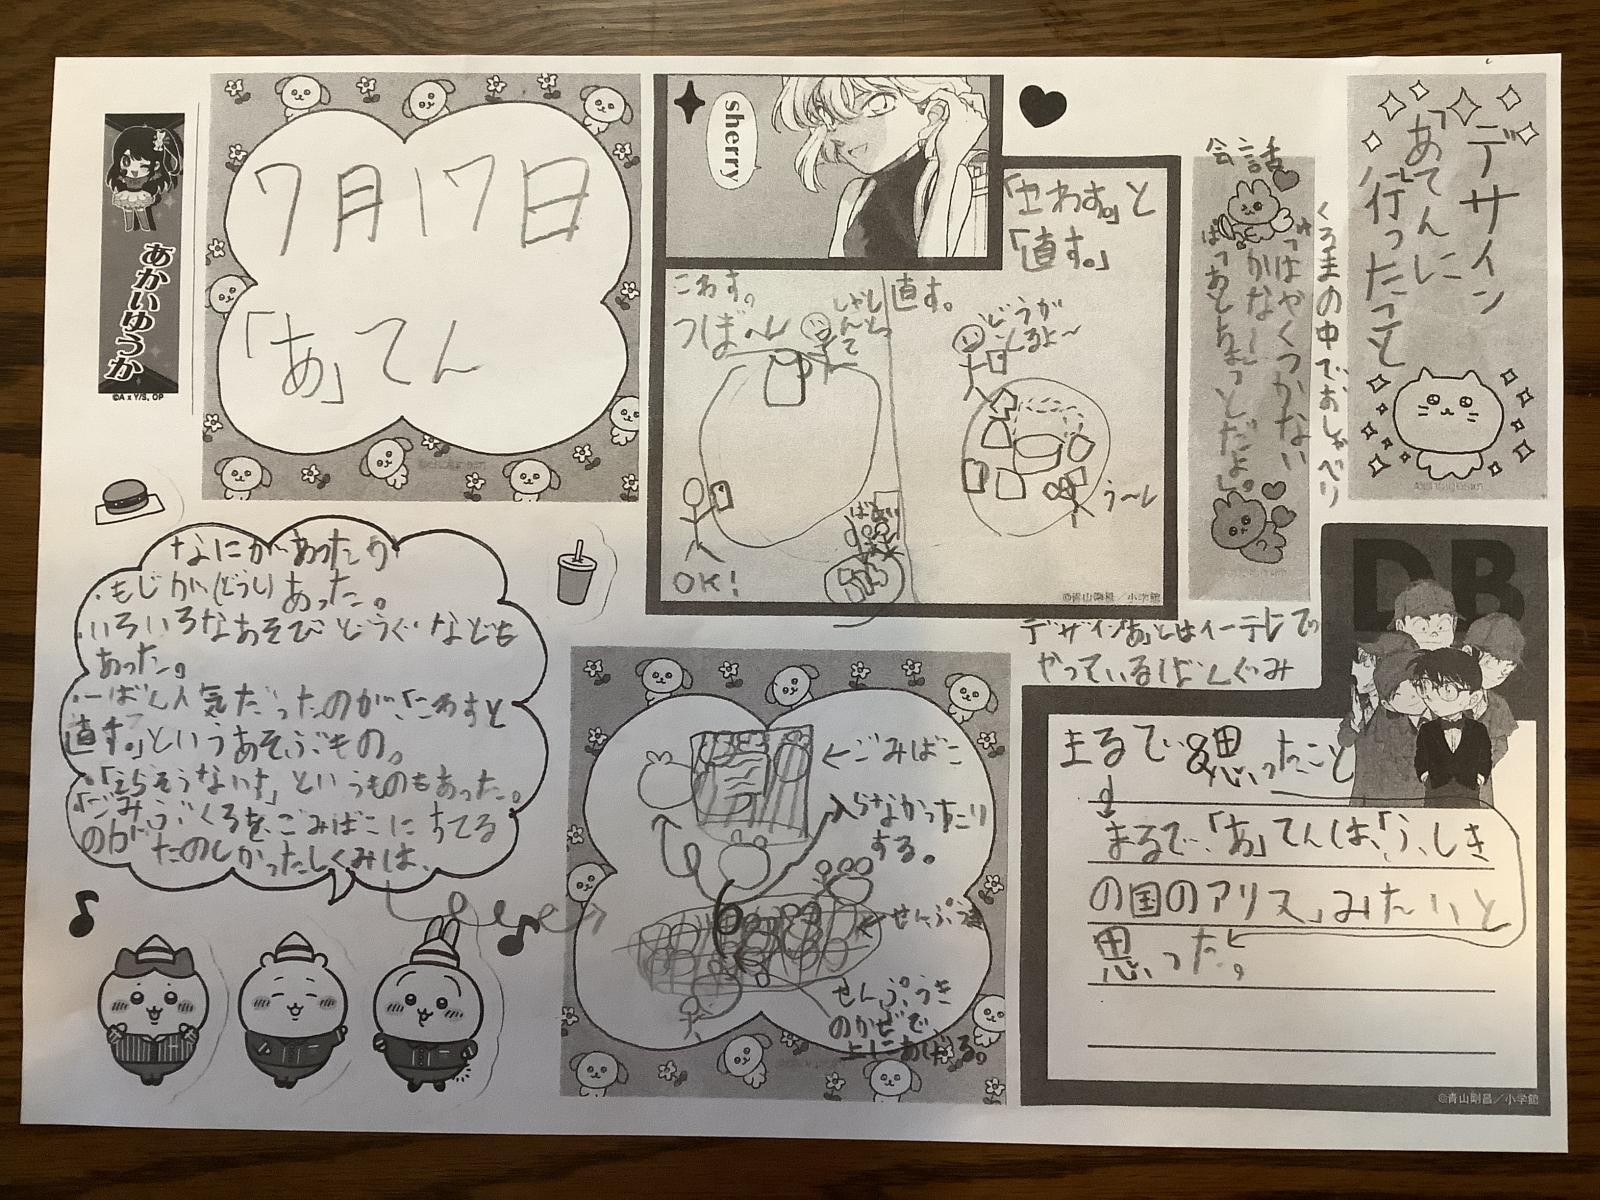 デザイン
「あ」てんに
行ったこと
くるまの中でおしゃべり
会話
sherry
「こわす。」と
「直す。」
こわす。
つば〜ん
直す。
どうが
とるよ〜
う〜ん
OK!
©青山剛昌／小学館
7月17日
「あ」てん
あかいゆうか
©A x Y/S, OP
なにがあったか
・もじが(どうし)あった。
・いろいろなあそびどうぐなども
あった。
・一ばん人気だったのが、「こわすと
直す。」というあそぶもの。
というものもあった。
「ごみぶくろを、ごみばこにすてる
のがたのしかったしくみは、
デザイン「あ」とはイーテレでや
やっているばんぐみ
DB
まるで思ったこと
まるで、「あ」てんは、「ふしぎ
の国のアリス」みたいと
思った。
©青山剛昌／小学館
←ごみばこ
入らなかったり
する。
せんぷうき
せんぷうき
のかぜで
上にあがる。